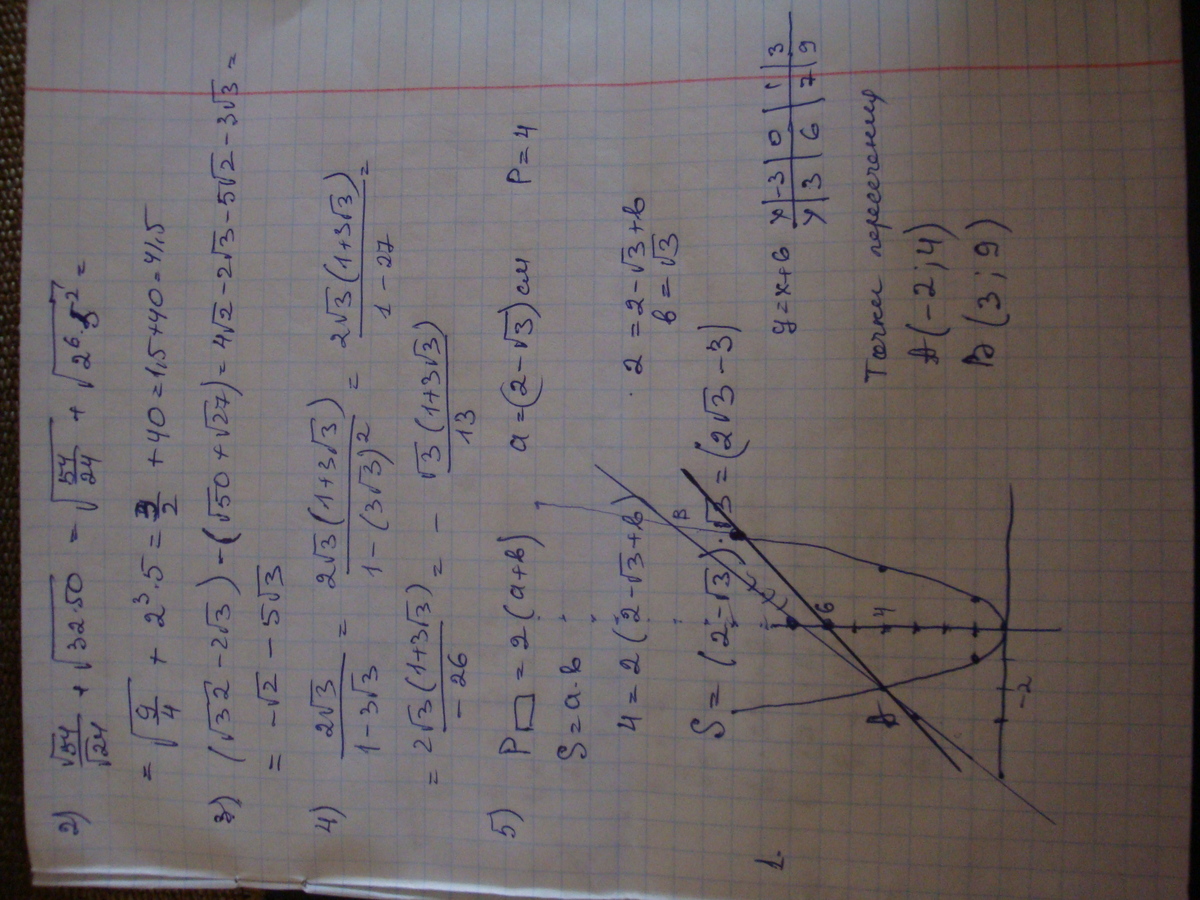 2) √54/√24 + √(32·50) = √(54/24) + √(2⁶·5²) =
= √(9/4) + 2³·5 = 3/2 + 40 = 1,5 + 40 = 41,5
3) (√32 - 2√3) - (√50 + √27) = 4√2 - 2√3 - 5√2 - 3√3 =
= -√2 - 5√3
4) 2√3/(1 - 3√3) = 2√3(1+3√3)/(1 - (3√3)²) = 2√3(1+3√3)/(1 - 27) =
= 2√3(1+3√3)/(-26) = - √3(1+3√3)/13
5) P▭ = 2(a+b) a = (2-√3) см P = 4
S = a·b
4 = 2(2-√3+b) 2 = 2-√3+b
b = √3
S = (2-√3)·√3 = (2√3 - 3)
1.
y = x+6
x | -3 | 0 | 1 | 3
y | 3 | 6 | 7 | 9
Точки пересечения
A (-2; 4)
B (3; 9)
B
6
4
A
-2